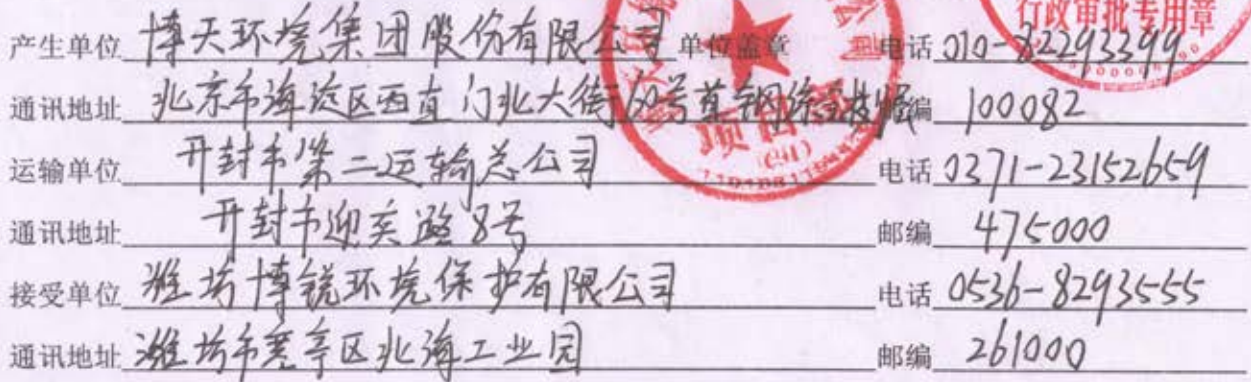 行政审批专用章
产生单位 博天环境集团股份有限公司 单位盖章 电话 010-82293399
通讯地址 北京市海淀区西直门北大街60号首钢综合 邮编 100082
项目 (41)
运输单位 开封市第二运输总公司 电话 0371-23152659
通讯地址 开封市迎宾路8号 邮编 475000
接受单位 潍坊博锐环境保护有限公司 电话 0536-8293555
通讯地址 潍坊市寒亭区北海工业园 邮编 261000